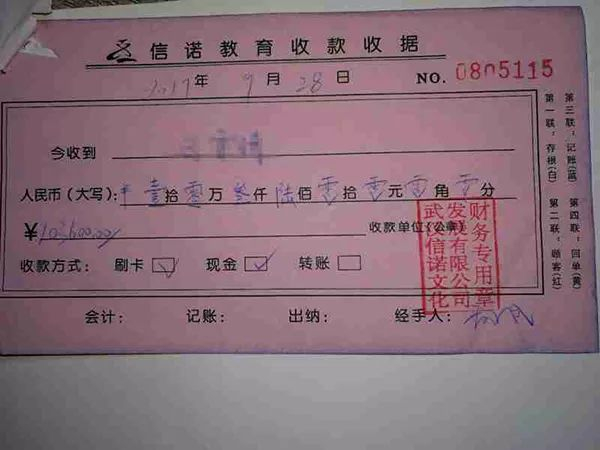 信诺教育收款收据
2017年 9月 28日 NO. 0805115
今收到
人民币（大写）： 壹拾零万叁仟陆佰零拾零元零角零分
¥103,600.00 收款单位（公章）
收款方式： 刷卡 现金 转账
会计： 记账： 出纳： 经手人：
第三联：记账(蓝) 第四联：回单(黄)
第一联：存根(白) 第二联：顾客(红)
财务专用章
发展有限公司
武汉信诺文化